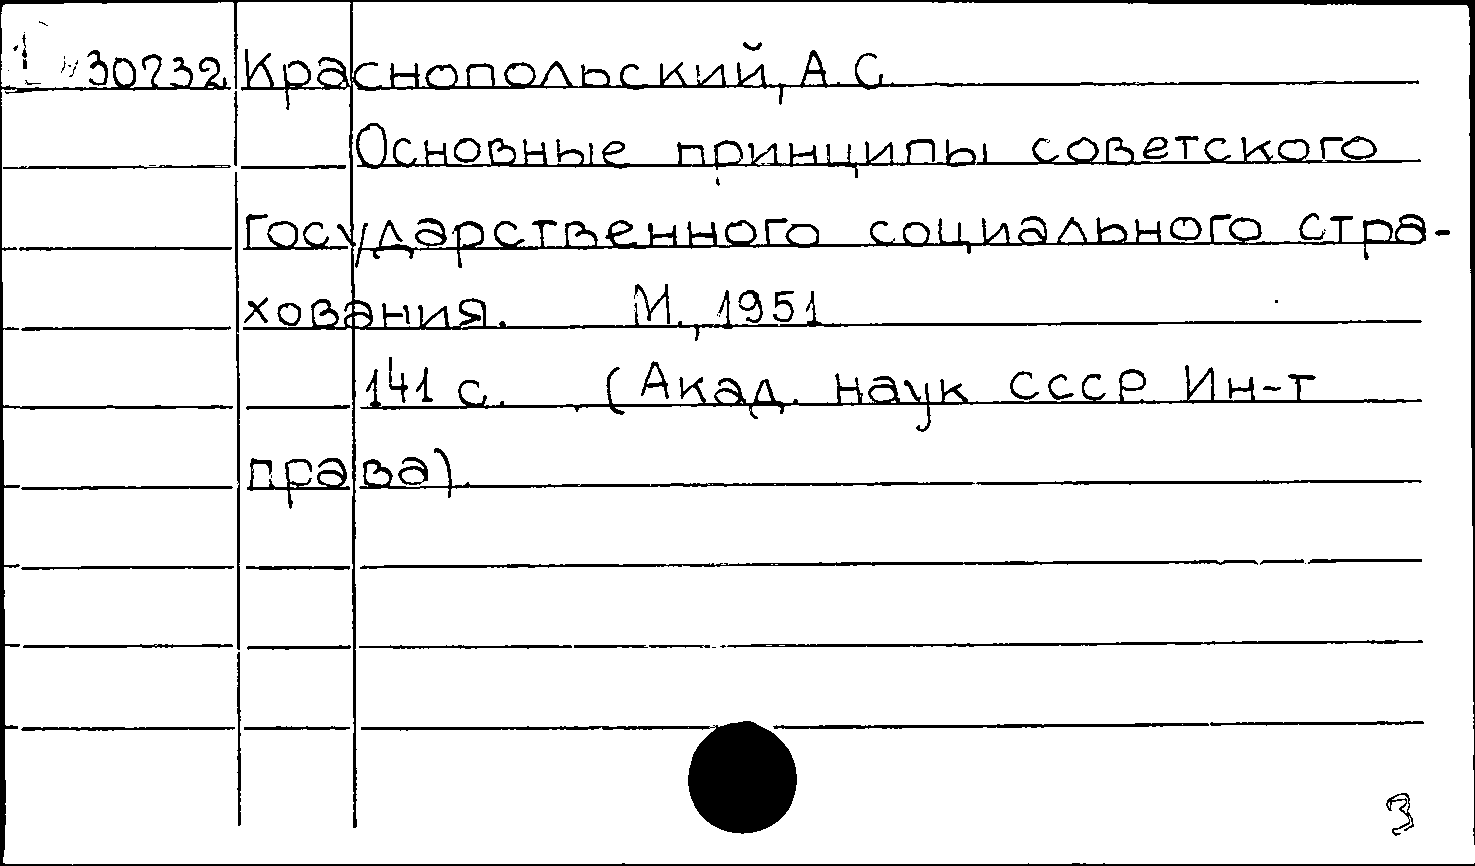 30232 Краснопольский, А. С.
Основные принципы советского
государственного социального стра-
хования. М., 1951
141 с. (Акад. наук СССР Ин-т
права).
3